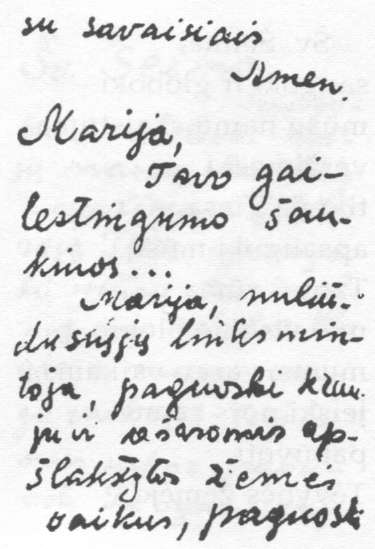 su savaisiais
Amen.
Marija,
Tavo gai-
lestingumo šau-
kmos...
Marija, nuliū-
dusiųjų linksmin-
toja, paguoski krau-
ju ir ašaromis ap-
šlakstytos žemės
vaikus, paguosk